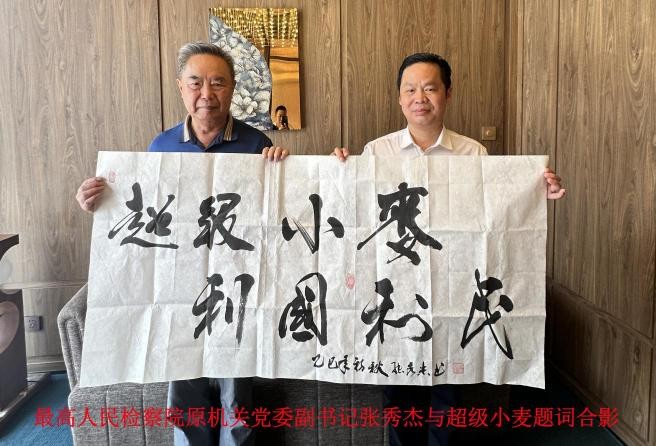 超级小麥
利國利民
乙巳年初秋 张秀杰书
最高人民检察院原机关党委副书记张秀杰与超级小麦题词合影